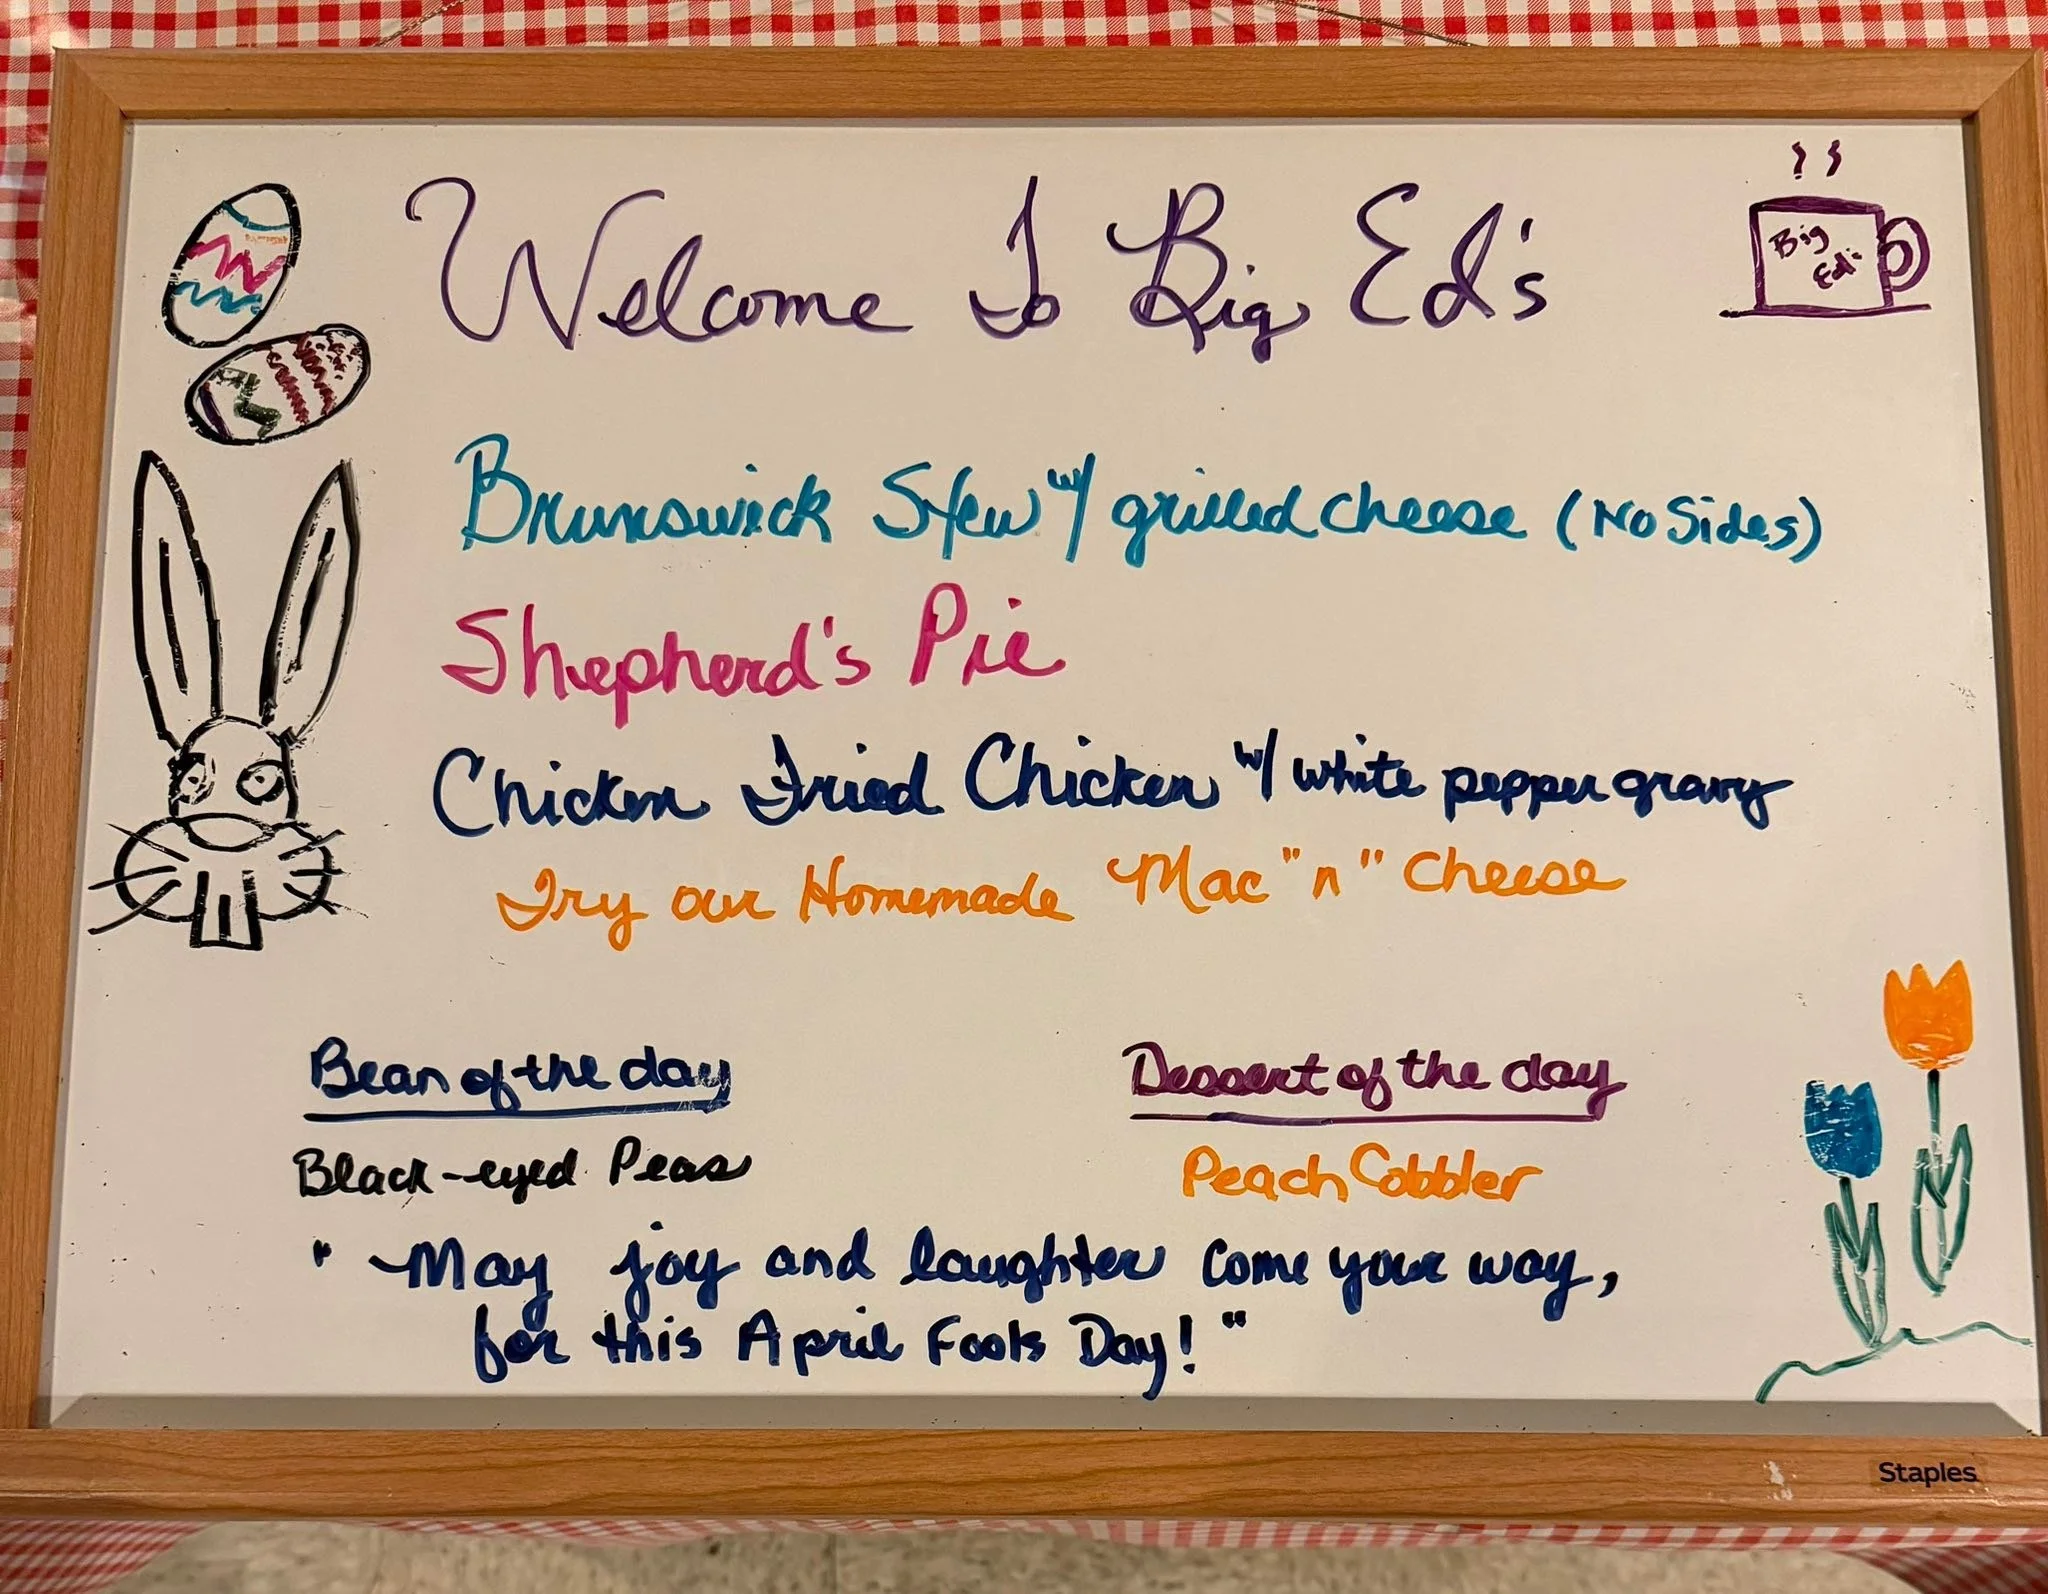 Welcome To Big Ed's
Big
Ed's
Brunswick Stew w/ grilled cheese (No Sides)
Shepherd's Pie
Chicken Fried Chicken w/ white pepper gravy
Try our Homemade Mac "n" Cheese
Bean of the day
Black-eyed Peas
Dessert of the day
Peach Cobbler
" May joy and laughter come your way,
for this April Fools Day! "
Staples